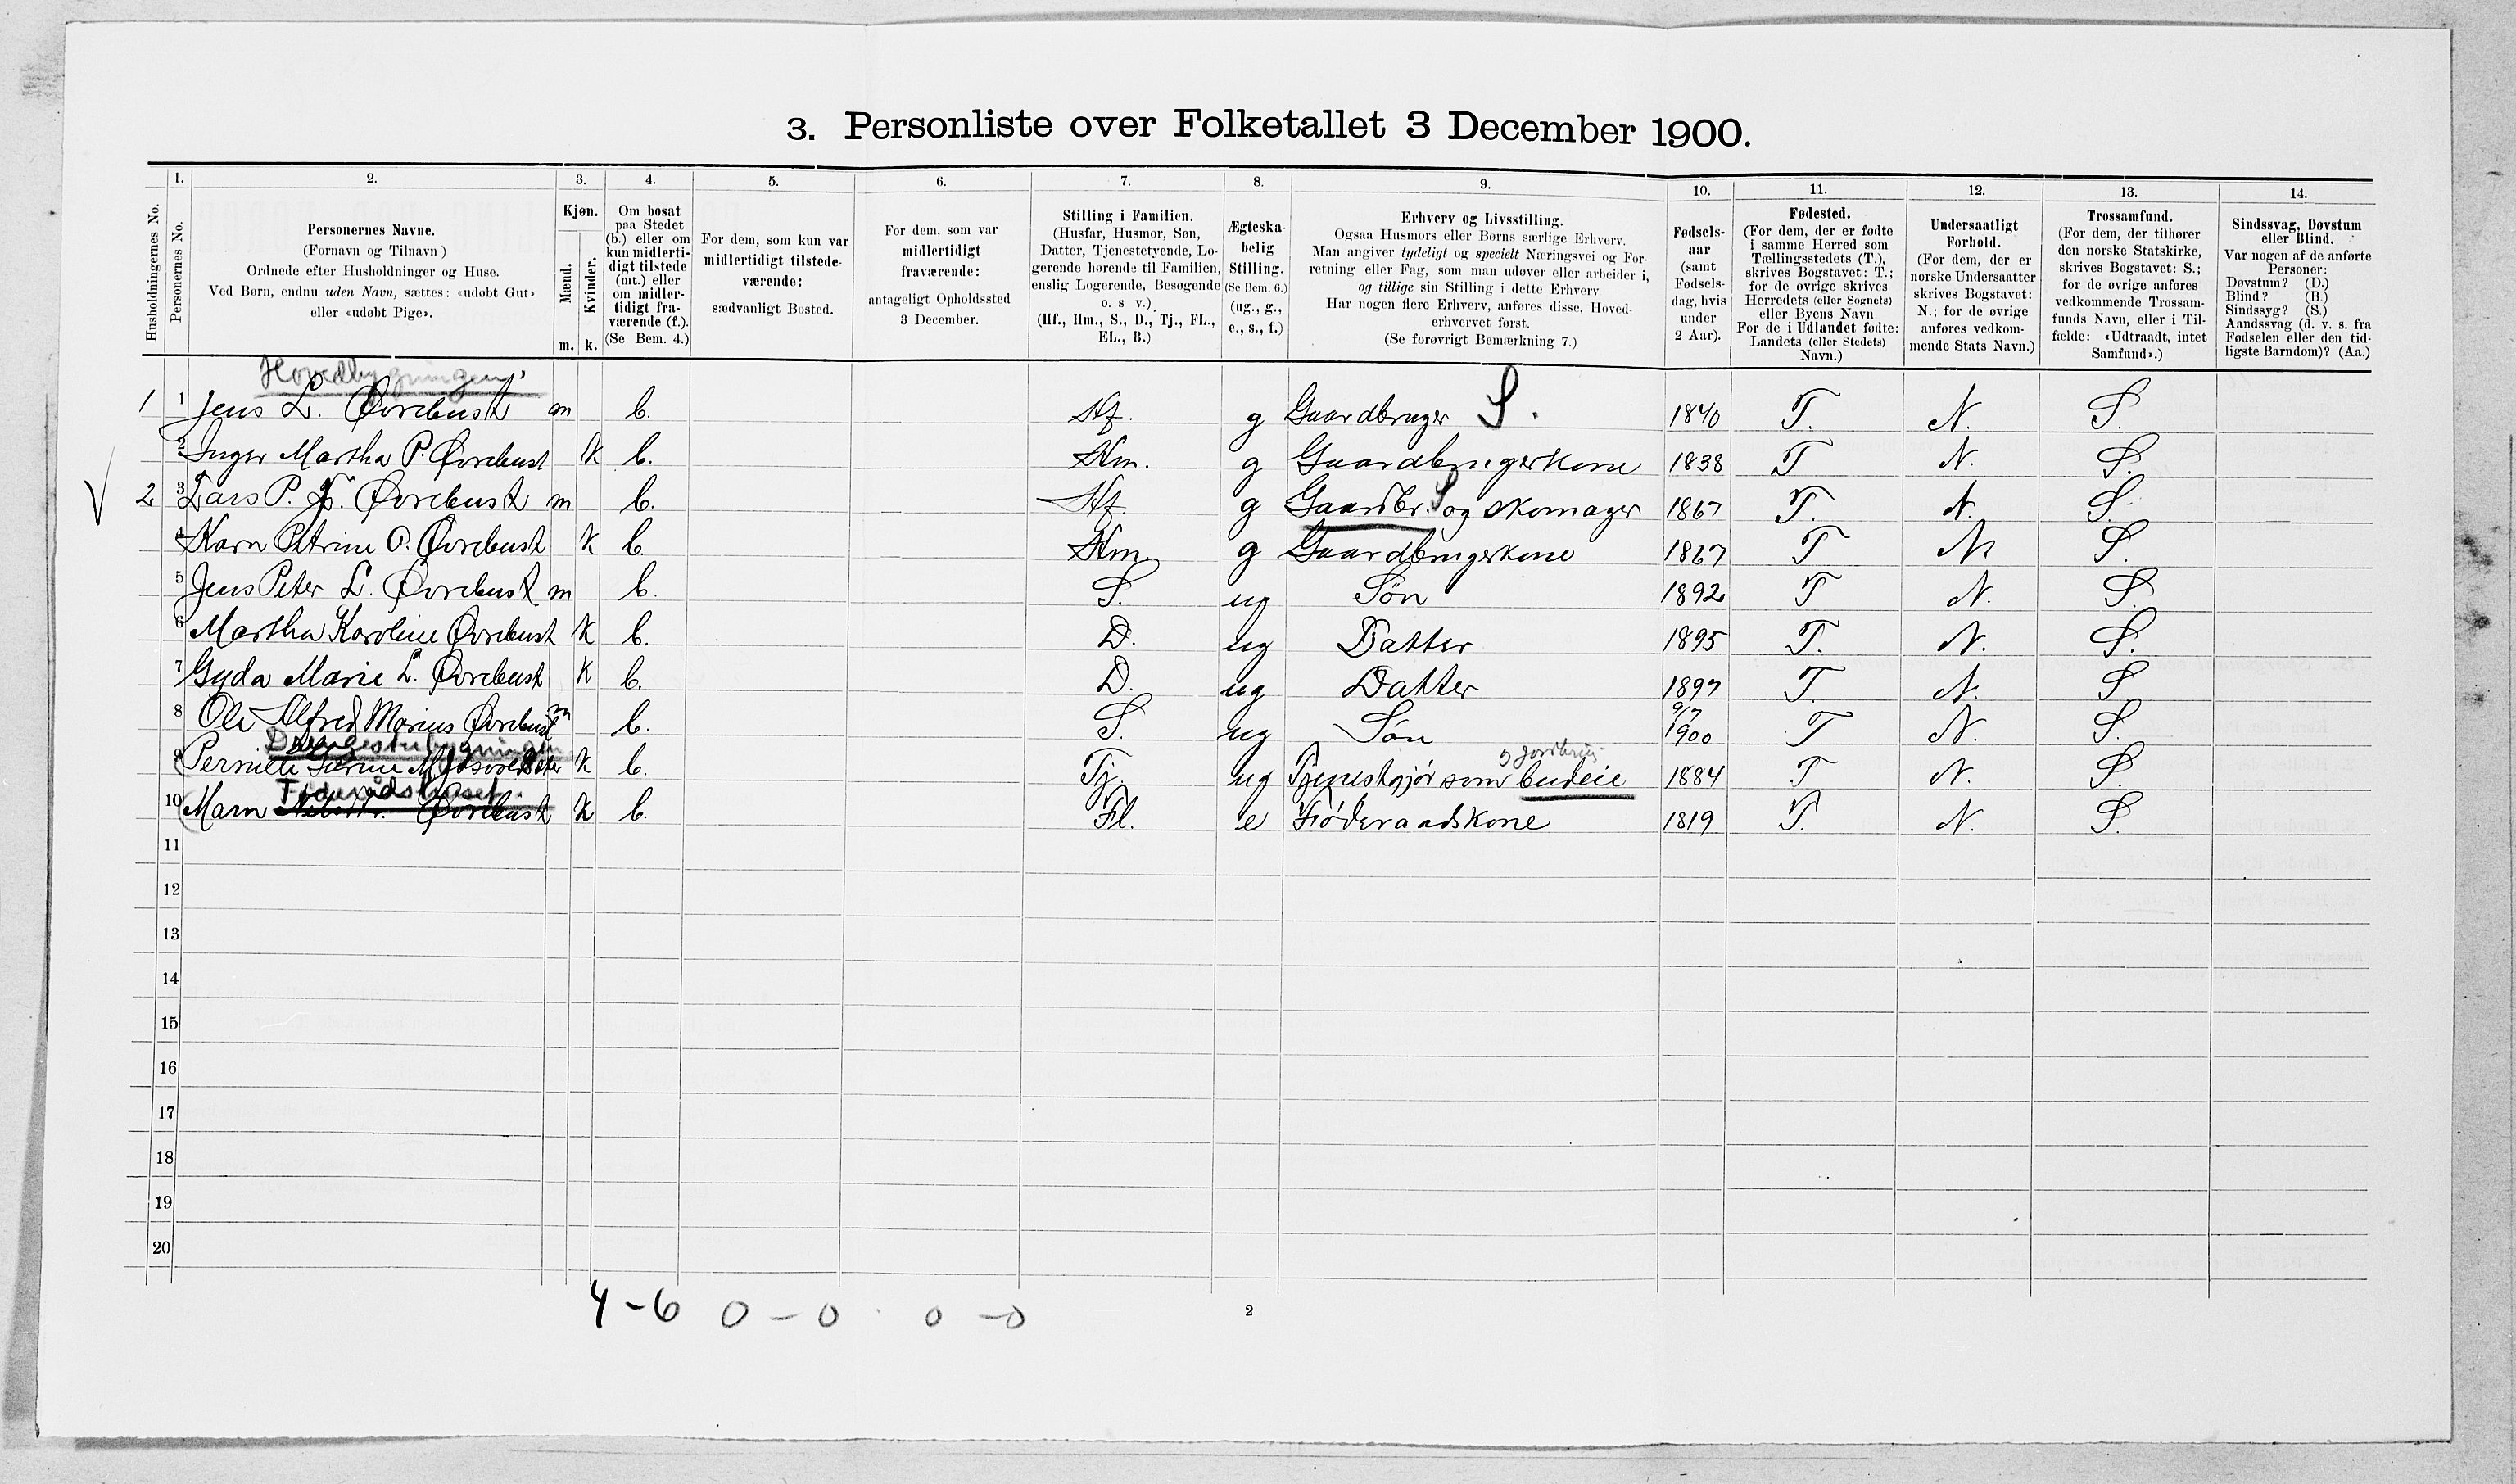 3. Personliste over Folketallet 3 December 1900.
Husholdningernes No.
1.
Personernes No.
2.
Personernes Navne.
(Fornavn og Tilnavn)
Ordnede efter Husholdninger og Huse.
Ved Børn, endnu uden Navn, sættes: «udøbt Gut»
eller «udøbt Pige».
3.
Kjøn.
Mænd.
Kvinder.
m. k.
4.
Om bosat
paa Stedet
(b.) eller om
kun midlerti-
digt tilstede
(mt.) eller
om midler-
tidigt fra-
værende (f.).
(Se Bem. 4.)
5.
For dem, som kun var
midlertidigt tilstede-
værende:
sædvanligt Bosted.
6.
For dem, som var
midlertidigt
fraværende:
antageligt Opholdssted
3 December.
7.
Stilling i Familien.
(Husfar, Husmor, Søn,
Datter, Tjenestetyende, Lo-
gerende hørende til Familien,
enslig Logerende, Besøgende
o. s v.)
(Hf., Hm., S., D., Tj., FL.,
EL., B.)
8.
Ægteska-
belig
Stilling.
(Se Bem. 6.)
(ug., g.,
e., s., f.)
9.
Erhverv og Livsstilling.
Ogsaa Husmors eller Børns særlige Erhverv.
Man angiver tydeligt og specielt Næringsvei og For-
retning eller Fag, som man udøver eller arbeider i,
og tillige sin Stilling i dette Erhverv
Har nogen flere Erhverv, anføres disse, Hoved-
erhvervet først.
(Se forøvrigt Bemærkning 7.)
10.
Fødsels-
aar
(samt
Fødsels-
dag, hvis
under
2 Aar).
11.
Fødested.
(For dem, der er fødte
i samme Herred som
Tællingsstedets (T.),
skrives Bogstavet: T.;
for de øvrige skrives
Herredets (eller Sognets)
eller Byens Navn
For de i Udlandet fødte:
Landets (eller Stedets)
Navn.)
12.
Undersaatligt
Forhold.
(For dem, der er
norske Undersaatter
skrives Bogstavet:
N.; for de øvrige
anføres vedkom-
mende Stats Navn.)
13.
Trossamfund.
(For dem, der tilhører
den norske Statskirke,
skrives Bogstavet: S.;
for de øvrige anføres
vedkommende Trossam-
funds Navn, eller i Til-
fælde: «Udtraadt, intet
Samfund».)
14.
Sindssvag, Døvstum
eller Blind.
Var nogen af de anførte
Personer:
Døvstum? (D.)
Blind? (B.)
Sindssyg? (S.)
Aandssvag (d. v. s. fra
Fødselen eller den tid-
ligste Barndom)? (Aa.)
Hovedbygningen
1 1 Jens L. Øvrebust m b. Hf. g Gaardbruger S. 1840 T. N. S.
2 Inger Martha P. Øvrebust k b. Hm. g Gaardbrugerkone 1838 T N. S.
2 3 Lars P. J. Øvrebust m b. Hf. g Gaardbr. S og skomager 1867 T. N. S.
4 Karn Petrine O. Øvrebust k b. Hm. g Gaardbrugerkone 1867 T N S.
5 Jens Peter L. Øvrebust m b. S. ug Søn 1892 T N. S.
6 Martha Karoline Øvrebust k b. D. ug Datter 1895 T. N. S.
7 Gyda Marie L. Øvrebust k b. D. ug Datter 1897 T. N. S
8 Ole Alfred Marius Øvrebust m b. S. ug Søn 9/7 1900 T N. S.
9 Pernille k b. Tj. ug Tjenestgjør som budeie 1884 T N. S.
Føderådshuset.
10 Marn Øvrebust k b. Fl. e Føderaadskone 1819 T. N. S.
11
12
13
14
15
16
17
18
19
20
4-6 0-0 0-0
2